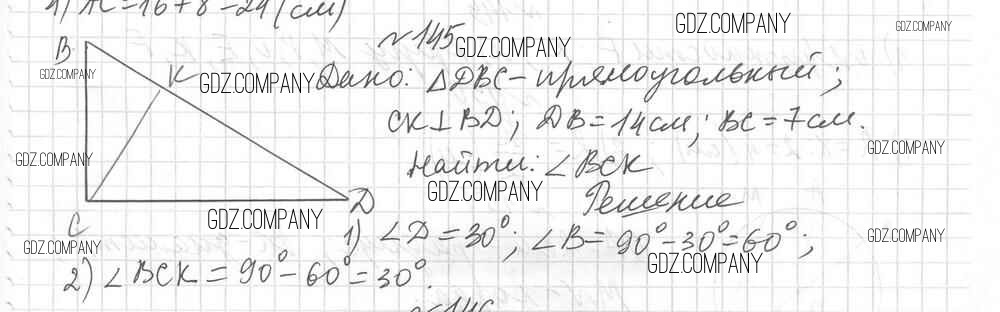 4) AC = 16 + 8 = 24 (см)
№145
Дано: △DBC - прямоугольный;
CK ⊥ BD; DB = 14 см; BC = 7 см.
Найти: ∠BCK
Решение
1) ∠D = 30°; ∠B = 90° - 30° = 60°;
2) ∠BCK = 90° - 60° = 30°.
№146
B
K
C
D
GDZ.COMPANY
GDZ.COMPANY
GDZ.COMPANY
GDZ.COMPANY
GDZ.COMPANY
GDZ.COMPANY
GDZ.COMPANY
GDZ.COMPANY
GDZ.COMPANY
GDZ.COMPANY
GDZ.COMPANY
GDZ.COMPANY